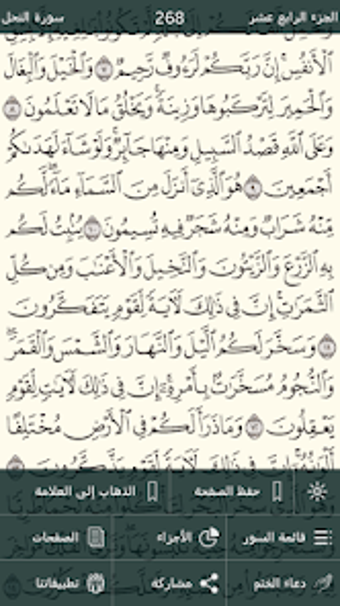 الجزء الرابع عشر 268 سورة النحل
ٱلْأَنفُسِ إِنَّ رَبَّكُمْ لَرَءُوفٌ رَّحِيمٌ ٧ وَٱلْخَيْلَ وَٱلْبِغَالَ
وَٱلْحَمِيرَ لِتَرْكَبُوهَا وَزِينَةً وَيَخْلُقُ مَا لَا تَعْلَمُونَ ٨
وَعَلَى ٱللَّهِ قَصْدُ ٱلسَّبِيلِ وَمِنْهَا جَآئِرٌ وَلَوْ شَآءَ لَهَدَىٰكُمْ
أَجْمَعِينَ ٩ هُوَ ٱلَّذِىٓ أَنزَلَ مِنَ ٱلسَّمَآءِ مَآءً لَّكُم
مِّنْهُ شَرَابٌ وَمِنْهُ شَجَرٌ فِيهِ تُسِيمُونَ ١٠ يُنۢبِتُ لَكُم
بِهِ ٱلزَّرْعَ وَٱلزَّيْتُونَ وَٱلنَّخِيلَ وَٱلْأَعْنَٰبَ وَمِن كُلِّ
ٱلثَّمَرَٰتِ إِنَّ فِى ذَٰلِكَ لَءَايَةً لِّقَوْمٍ يَتَفَكَّرُونَ
١١ وَسَخَّرَ لَكُمُ ٱلَّيْلَ وَٱلنَّهَارَ وَٱلشَّمْسَ وَٱلْقَمَرَ
وَٱلنُّجُومُ مُسَخَّرَٰتٌۢ بِأَمْرِهِۦٓ إِنَّ فِى ذَٰلِكَ لَءَايَٰتٍ لِّقَوْمٍ
يَعْقِلُونَ ١٢ وَمَا ذَرَأَ لَكُمْ فِى ٱلْأَرْضِ مُخْتَلِفًا
أَلْوَٰنُهُۥٓ إِنَّ فِى ذَٰلِكَ لَءَايَةً لِّقَوْمٍ يَذَّكَّرُونَ
حفظ الصفحة الذهاب إلى العلامة
قائمة السور الأجزاء الصفحات
دعاء الختم مشاركة تطبيقاتنا